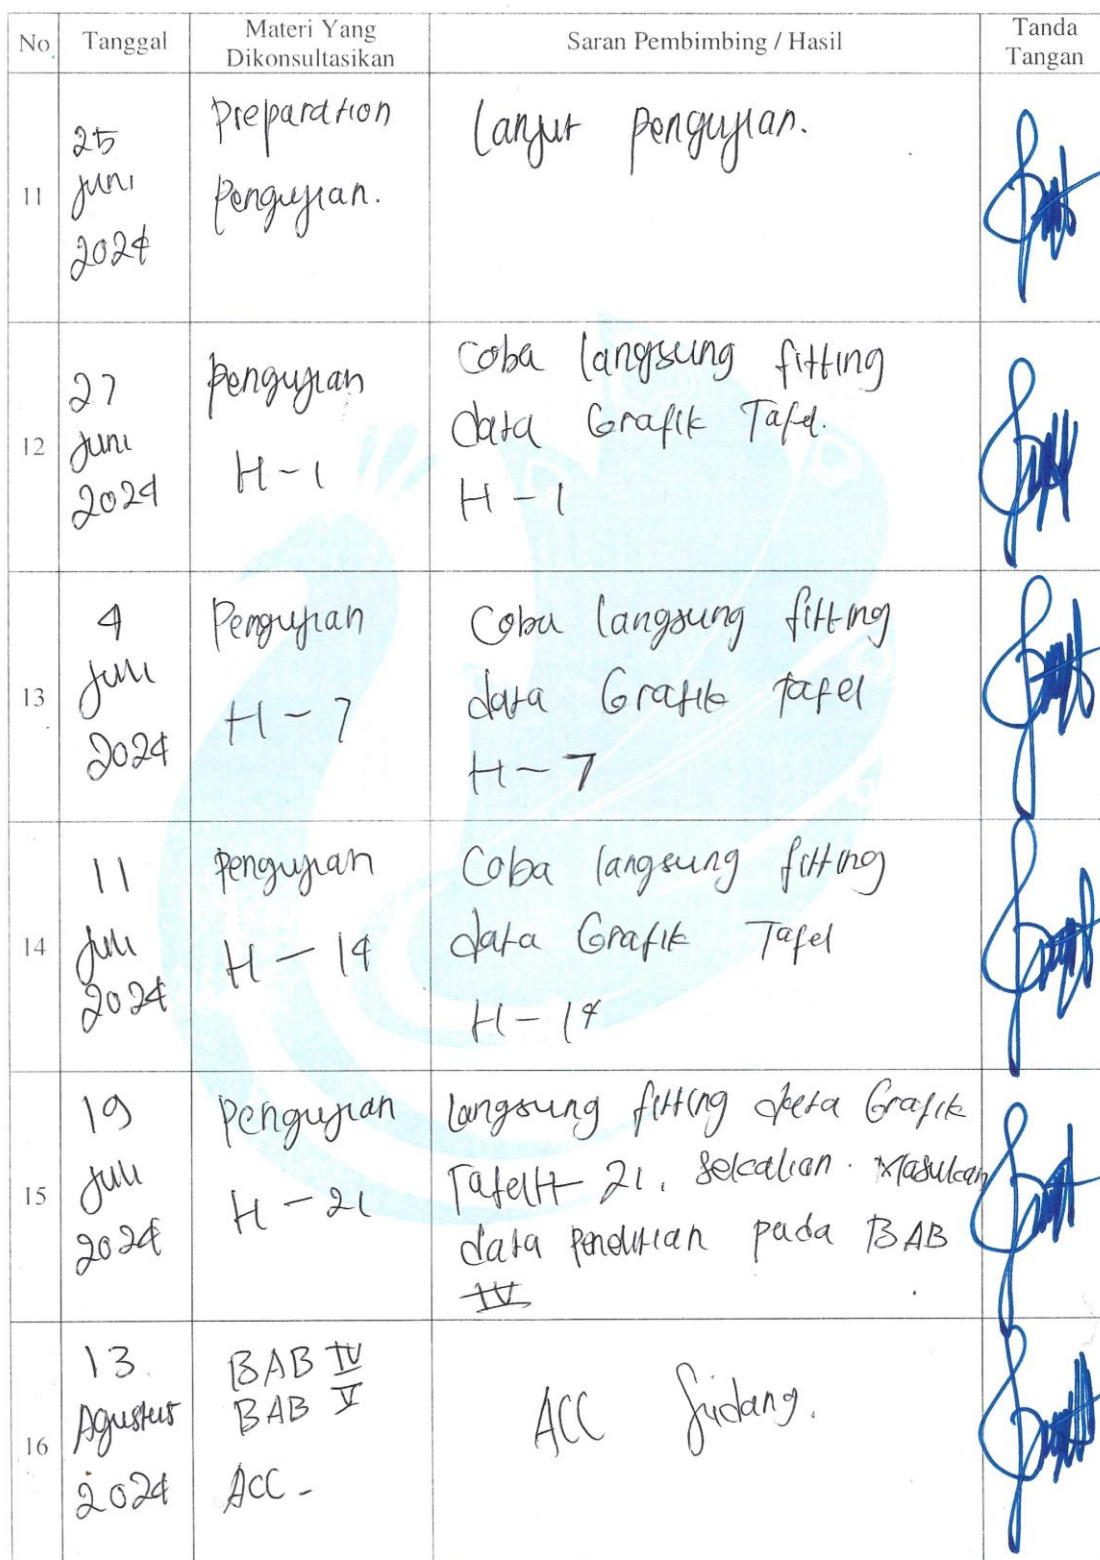 No Tanggal Materi Yang Dikonsultasikan Saran Pembimbing / Hasil Tanda Tangan
11
25
Juni
2024
Preparation
Pengujian.
Lanjut Pengujian.
12
27
Juni
2024
Pengujian
H - 1
Coba langsung fitting
data Grafik Tafel.
H - 1
13
4
Juli
2024
Pengujian
H - 7
Coba langsung fitting
data Grafik Tafel
H - 7
14
11
Juli
2024
Pengujian
H - 14
Coba langsung fitting
data Grafik Tafel
H - 14
15
19
Juli
2024
Pengujian
H - 21
langsung fitting data Grafik
Tafel H - 21. sekalian. Masukan
data penelitian pada BAB
IV
16
13
Agustus
2024
BAB IV
BAB V
ACC -
ACC Sidang.